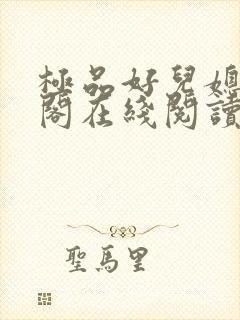 極品好兒媳
閣在綫閱讀
聖馬里